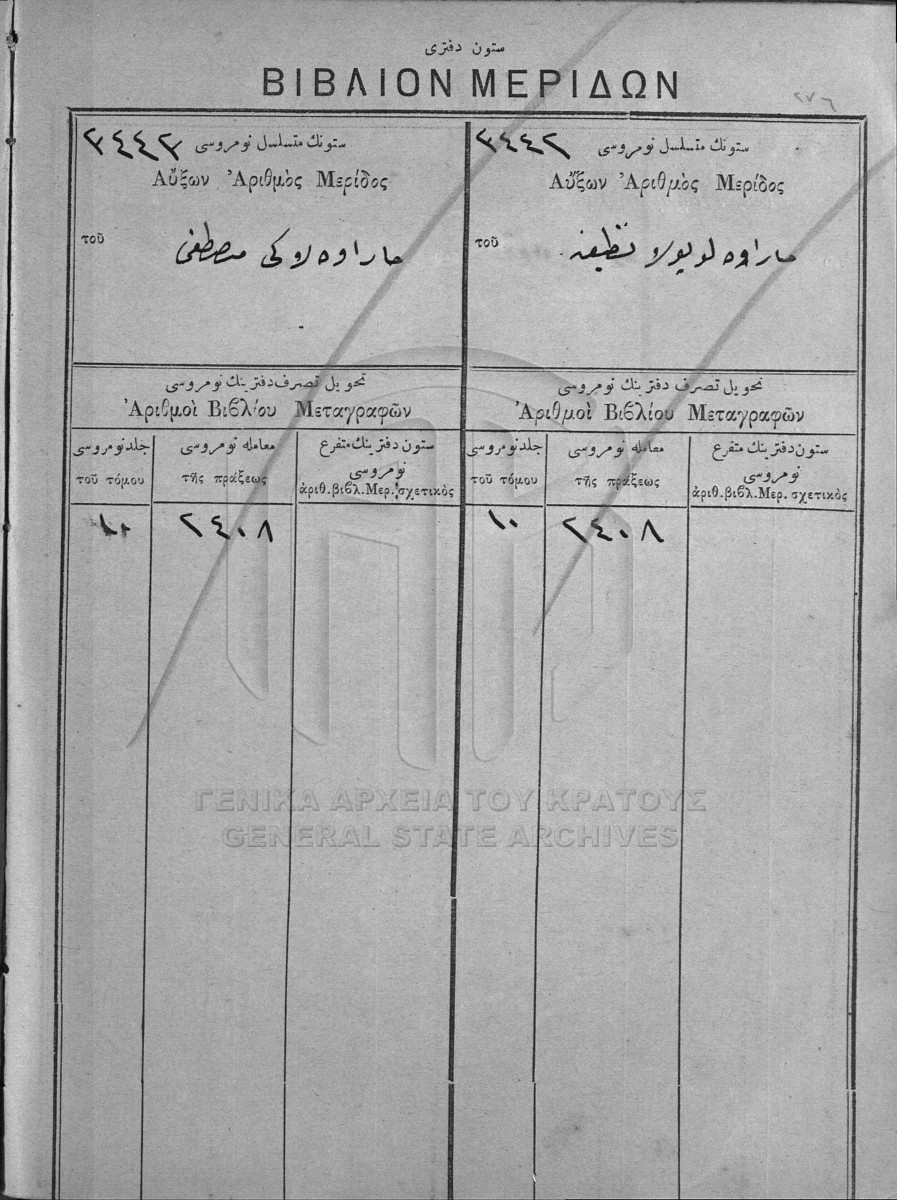 ستون دفتری
ΒΙΒΛΙΟΝ ΜΕΡΙΔΩΝ
٢٧٦
ستونك متسلسل نومروسی ٣٤٤٢
Αὔξων Ἀριθμὸς Μερίδος
τοῦ
نظيفه
تحويل تصرف دفترينك نومروسی
Ἀριθμοὶ Βιβλίου Μεταγραφῶν
جلد نومروسی
τοῦ τόμου
معامله نومروسی
τῆς πράξεως
ستون دفترينك متفرع
نومروسی
ἀριθ.βιβλ.Μερ. σχετικὸς
١٠
٢٤٠٨
ستونك متسلسل نومروسی ٣٤٤٣
Αὔξων Ἀριθμὸς Μερίδος
τοῦ
مصطفى
تحويل تصرف دفترينك نومروسی
Ἀριθμοὶ Βιβλίου Μεταγραφῶν
جلد نومروسی
τοῦ τόμου
معامله نومروسی
τῆς πράξεως
ستون دفترينك متفرع
نومروسی
ἀριθ.βιβλ.Μερ. σχετικὸς
١٠
٢٤٠٨
ΓΕΝΙΚΑ ΑΡΧΕΙΑ ΤΟΥ ΚΡΑΤΟΥΣ
GENERAL STATE ARCHIVES